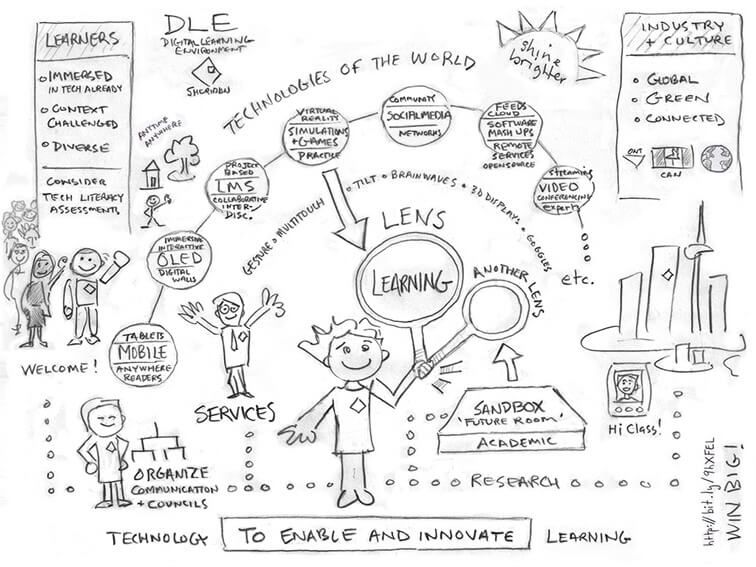 LEARNERS
IMMERSED
IN TECH ALREADY
CONTEXT
CHALLENGED
DIVERSE
CONSIDER
TECH LITERACY
ASSESSMENTS
DLE
DIGITAL LEARNING
ENVIRONMENT
SHERIDAN
ANYTIME
ANYWHERE
TECHNOLOGIES OF THE WORLD
shine
brighter
INDUSTRY
+ CULTURE
GLOBAL
GREEN
CONNECTED
ONT
CAN
TABLETS
MOBILE
ANYWHERE
READERS
IMMERSIVE
INTERACTIVE
OLED
DIGITAL
WALLS
PROJECT
BASED
LMS
COLLABORATIVE
INTER-
DISC.
VIRTUAL
REALITY
SIMULATIONS
+ GAMES
PRACTICE
COMMUNITY
SOCIALMEDIA
NETWORKS
FEEDS
CLOUD
SOFTWARE
MASH UPS
REMOTE
SERVICES
OPENSOURCE
streaming
VIDEO
CONFERENCING
experts
etc.
GESTURE MULTITOUCH
TILT BRAINWAVES 3D DISPLAYS GOGGLES
LENS
LEARNING
ANOTHER LENS
WELCOME!
SERVICES
SANDBOX
'FUTURE ROOM'
ACADEMIC
Hi Class!
ORGANIZE
COMMUNICATION
+ COUNCILS
RESEARCH
TECHNOLOGY TO ENABLE AND INNOVATE LEARNING
http://bit.ly/9hXFEL
WIN BIG!